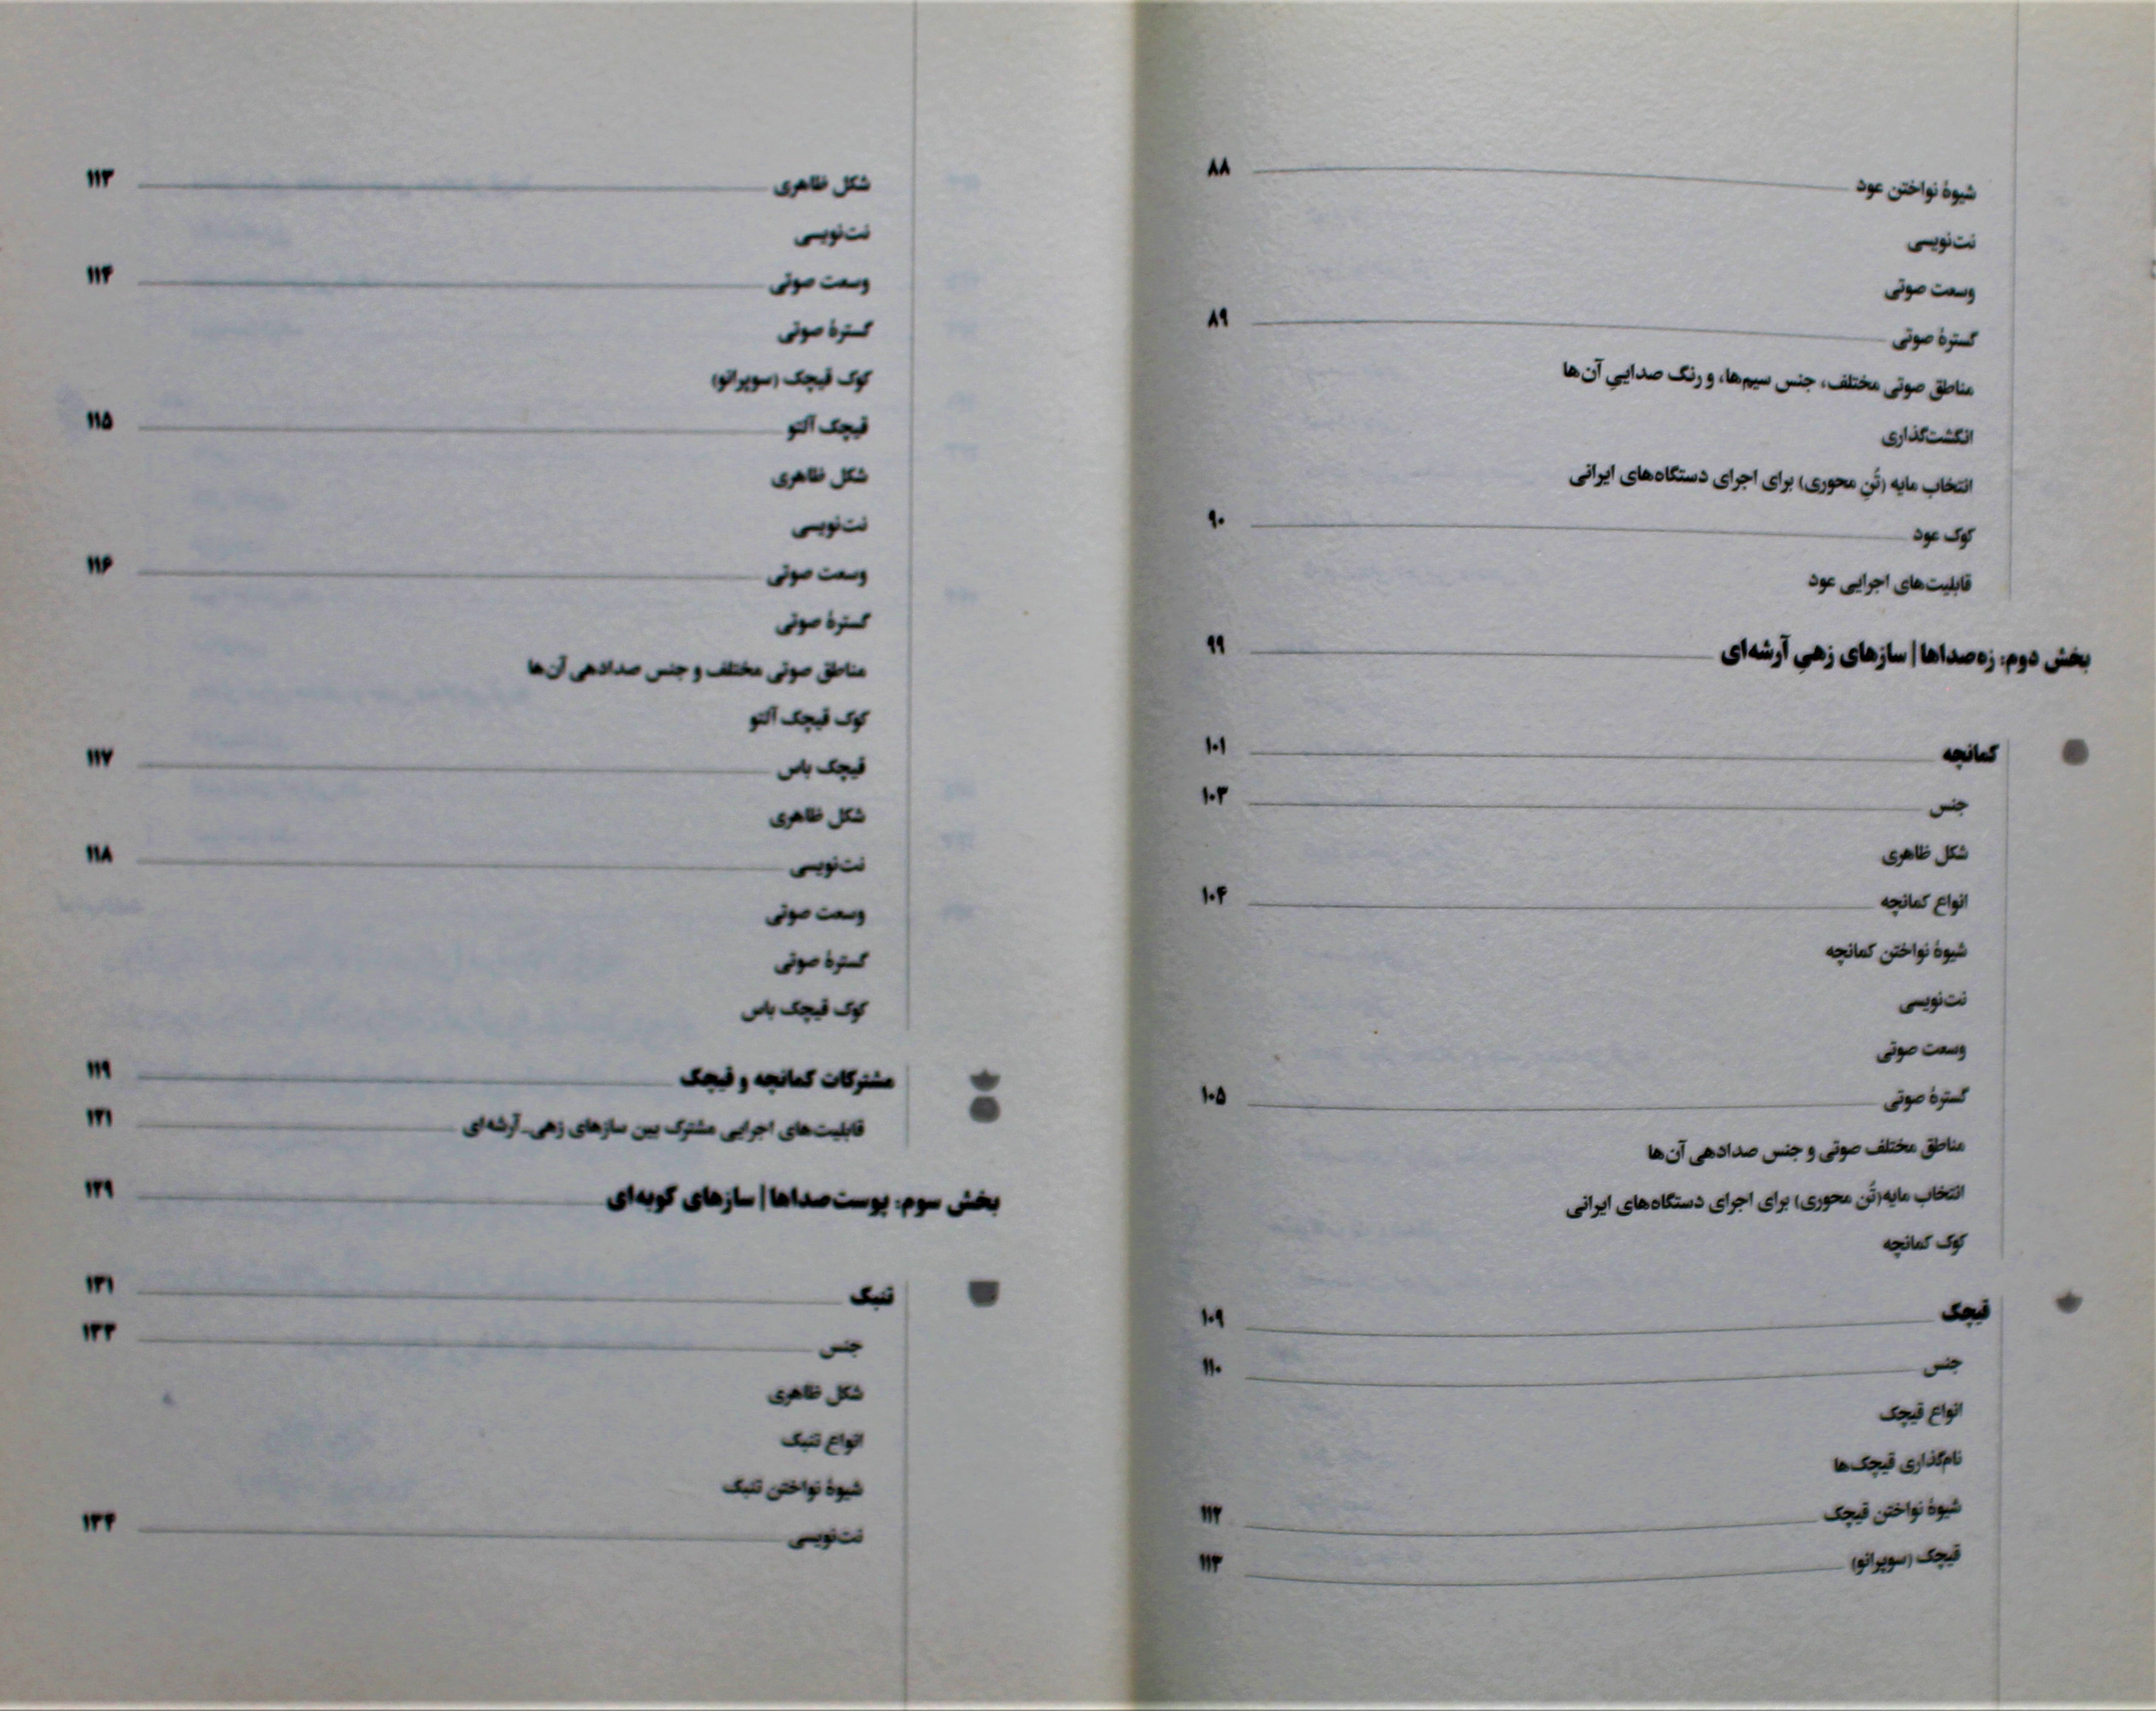 شیوهٔ نواختن عود ۸۸
نت‌نویسی
وسعت صوتی
گسترهٔ صوتی ۸۹
مناطق صوتی مختلف، جنس سیم‌ها، و رنگ صداییِ آن‌ها
انگشت‌گذاری
انتخاب مایه (تُنِ محوری) برای اجرای دستگاه‌های ایرانی
کوک عود ۹۰
قابلیت‌های اجرایی عود
بخش دوم: زه‌صداها | سازهای زهیِ آرشه‌ای ۹۹
کمانچه ۱۰۱
جنس ۱۰۳
شکل ظاهری
انواع کمانچه ۱۰۴
شیوهٔ نواختن کمانچه
نت‌نویسی
وسعت صوتی
گسترهٔ صوتی ۱۰۵
مناطق مختلف صوتی و جنس صدادهی آن‌ها
انتخاب مایه(تُن محوری) برای اجرای دستگاه‌های ایرانی
کوک کمانچه
قیچک ۱۰۹
جنس ۱۱۰
انواع قیچک
نام‌گذاری قیچک‌ها
شیوهٔ نواختن قیچک ۱۱۲
قیچک (سوپرانو) ۱۱۳
شکل ظاهری ۱۱۳
نت‌نویسی
وسعت صوتی ۱۱۴
گسترهٔ صوتی
کوک قیچک (سوپرانو)
قیچک آلتو ۱۱۵
شکل ظاهری
نت‌نویسی
وسعت صوتی ۱۱۶
گسترهٔ صوتی
مناطق صوتی مختلف و جنس صدادهی آن‌ها
کوک قیچک آلتو
قیچک باس ۱۱۷
شکل ظاهری
نت‌نویسی ۱۱۸
وسعت صوتی
گسترهٔ صوتی
کوک قیچک باس
مشترکات کمانچه و قیچک ۱۱۹
قابلیت‌های اجرایی مشترک بین سازهای زهی_آرشه‌ای ۱۲۱
بخش سوم: پوست‌صداها | سازهای کوبه‌ای ۱۲۹
تنبک ۱۳۱
جنس ۱۳۳
شکل ظاهری
انواع تنبک
شیوهٔ نواختن تنبک
نت‌نویسی ۱۳۴